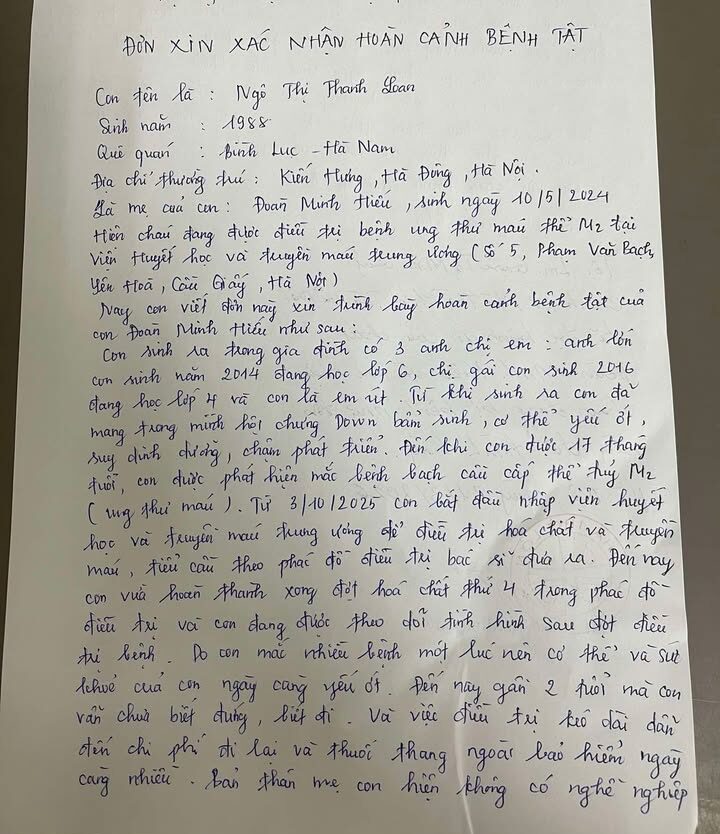 ĐƠN XIN XÁC NHẬN HOÀN CẢNH BỆNH TẬT
Con tên là : Ngô Thị Thanh Loan
Sinh năm : 1988
Quê quán : Bình Lục - Hà Nam
Địa chỉ thường trú : Kiến Hưng, Hà Đông, Hà Nội.
Là mẹ của con : Đoàn Minh Hiếu, sinh ngày 10/5/2024
Hiện cháu đang được điều trị bệnh ung thư máu thể M2 tại
viện Huyết học và truyền máu trung ương (Số 5, Phạm Văn Bạch,
Yên Hoà, Cầu Giấy, Hà Nội)
Nay con viết đơn này xin trình bày hoàn cảnh bệnh tật của
con Đoàn Minh Hiếu như sau :
Con sinh ra trong gia đình có 3 anh chị em : anh lớn
con sinh năm 2014 đang học lớp 6, chị gái con sinh 2016
đang học lớp 4 và con là em út. Từ khi sinh ra con đã
mang trong mình hội chứng Down bẩm sinh, cơ thể yếu ớt,
suy dinh dưỡng, chậm phát triển. Đến khi con được 17 tháng
tuổi, con được phát hiện mắc bệnh bạch cầu cấp thể tuỷ M2
(ung thư máu). Từ 3/10/2025 con bắt đầu nhập viện huyết
học và truyền máu trung ương để điều trị hoá chất và truyền
máu, tiểu cầu theo phác đồ điều trị bác sĩ đưa ra. Đến nay
con vừa hoàn thành xong đợt hoá chất thứ 4 trong phác đồ
điều trị và con đang được theo dõi tình hình sau đợt điều
trị bệnh. Do con mắc nhiều bệnh một lúc nên cơ thể và sức
khoẻ của con ngày càng yếu ớt. Đến nay gần 2 tuổi mà con
vẫn chưa biết đứng, biết đi. Và việc điều trị kéo dài dẫn
đến chi phí đi lại và thuốc thang ngoài bảo hiểm ngày
càng nhiều. Bản thân mẹ con hiện không có nghề nghiệp